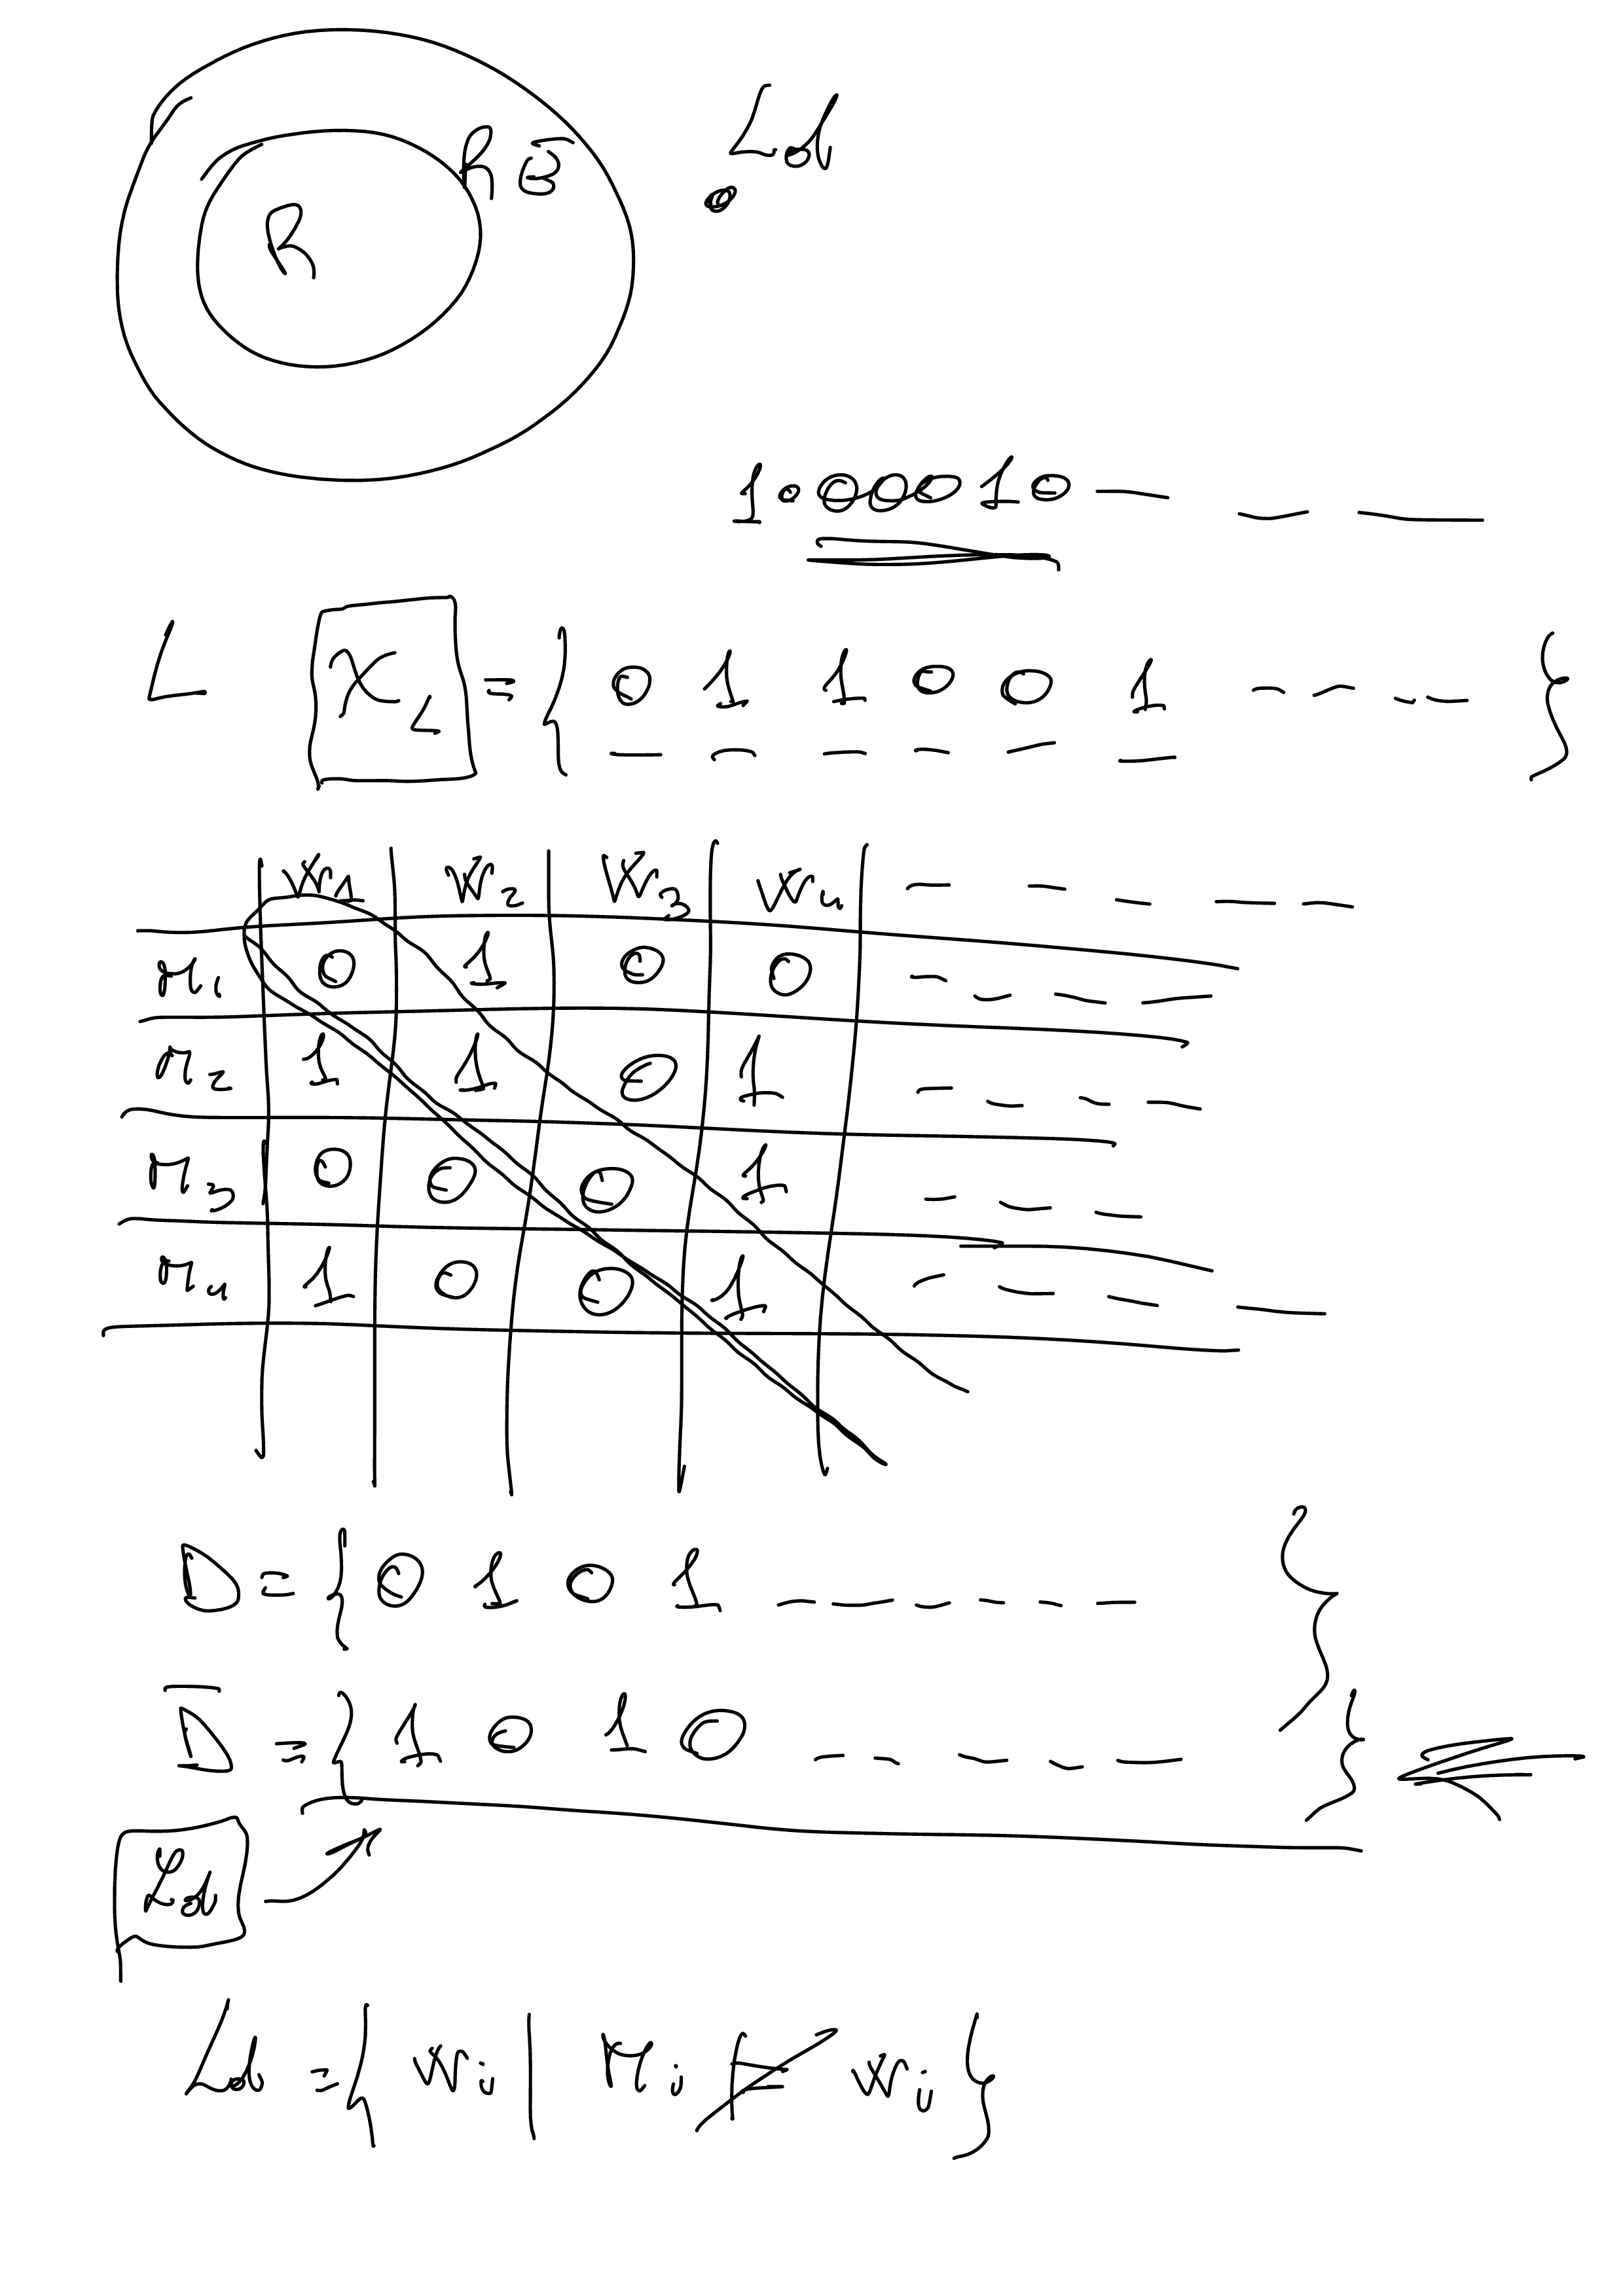 R RE Ld
1.000010
L χL = { 0 1 1 0 0 1 }
w1 w2 w3 w4
M1 0 1 0 0
M2 1 1 0 1
M3 0 0 0 1
M4 1 0 0 1
D = { 0 1 0 1
D̅ = { 1 0 1 0 }
Ld
Ld = { wi | Mi ⊭ wi }